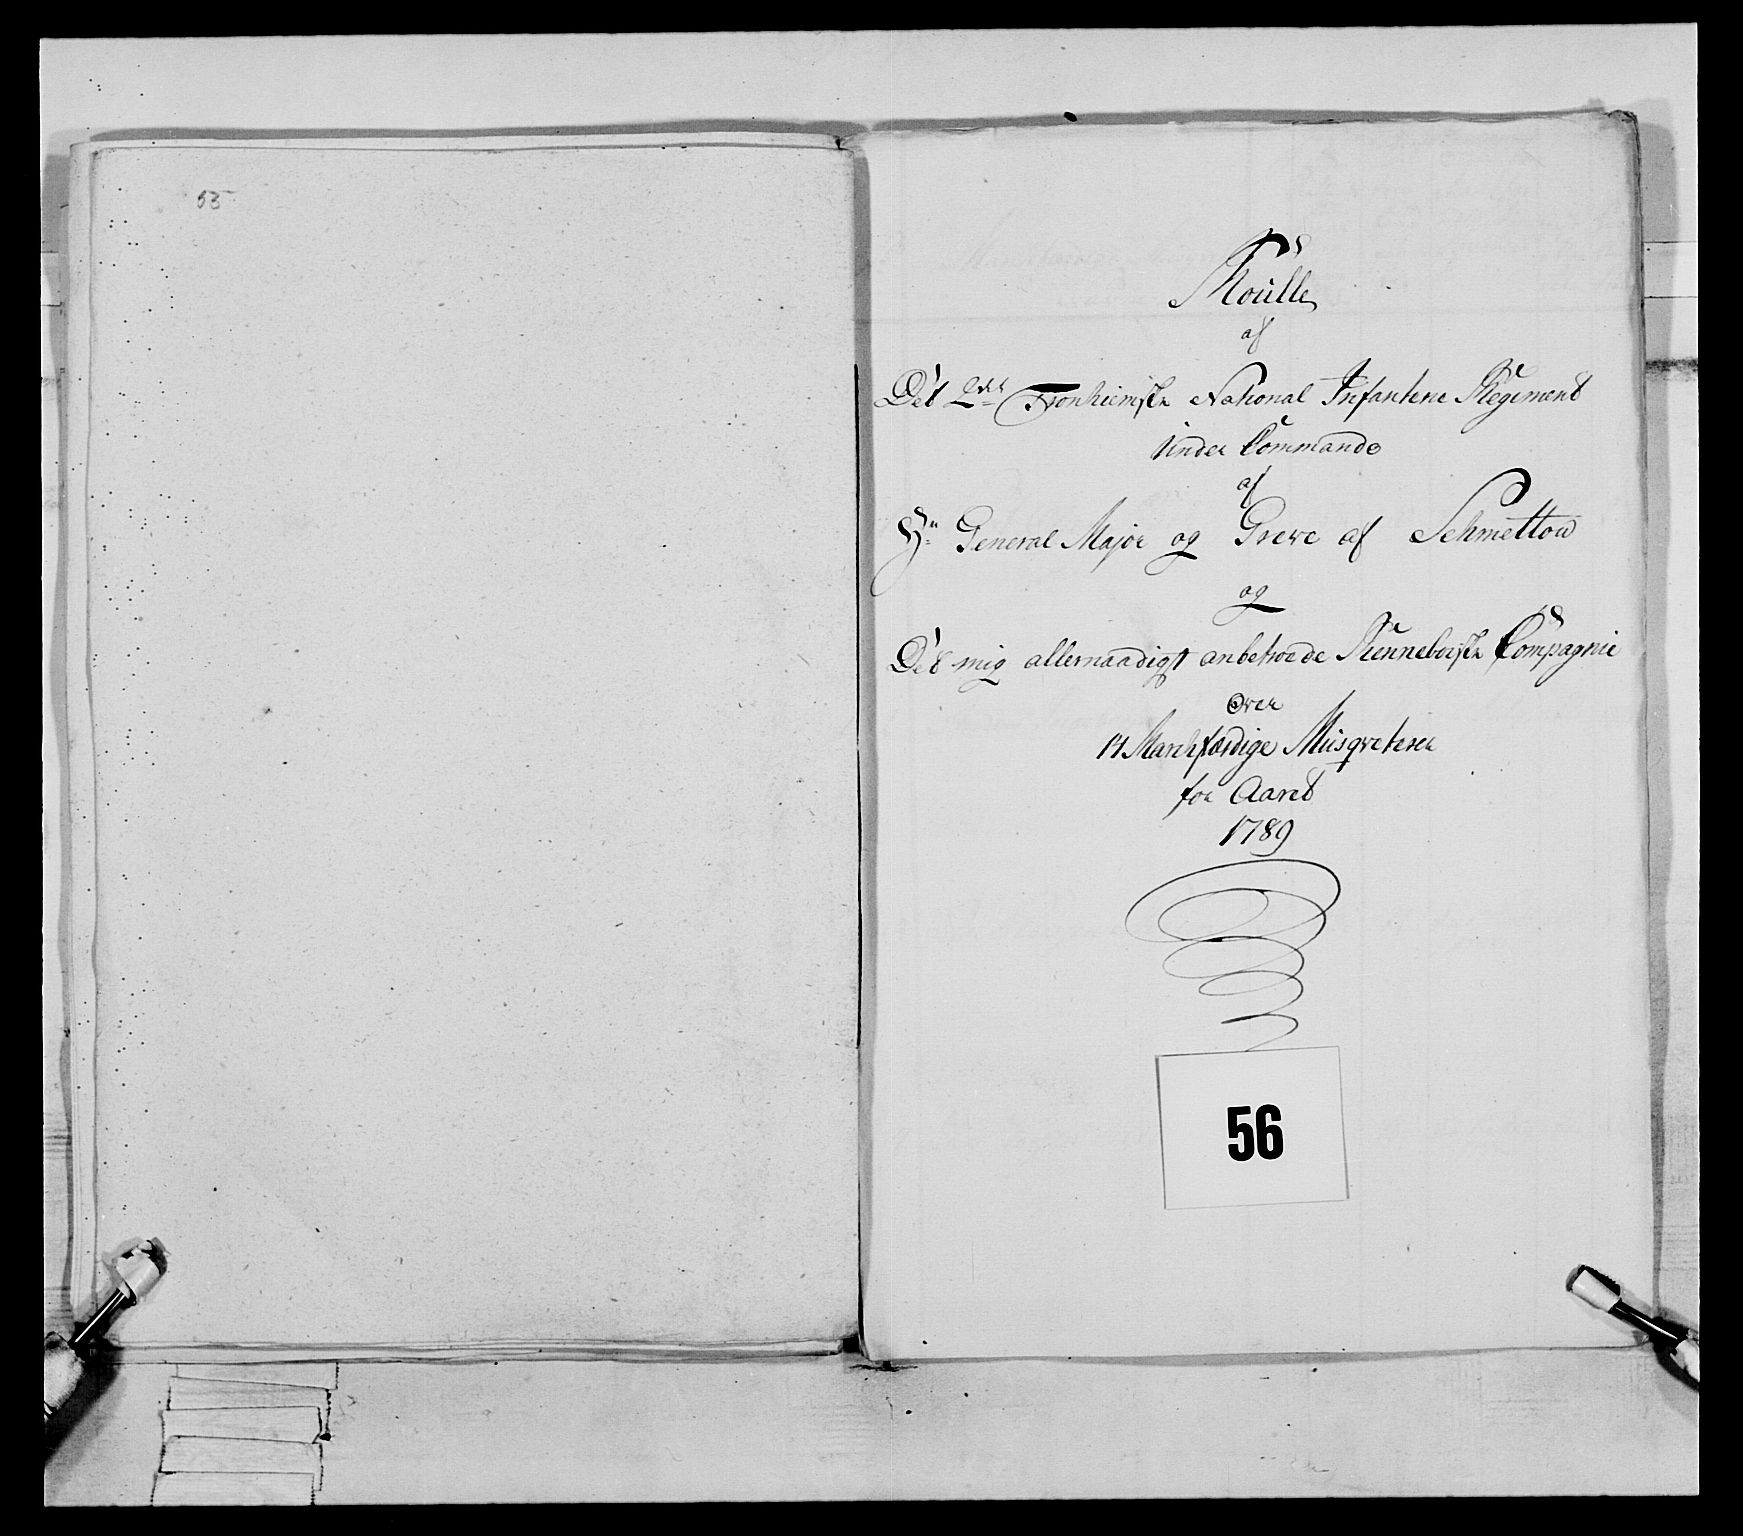 55
Roulle
af
Det 2det Tronhiemske National Infanterie Regiment
under Commando
af
Hr General Major og Greve af Schmettow
og
Det mig allernaadigst anbetroede Rennebouske Compagnie
over
14 Marchfærdige Musqveterer
for Aaret
1789
56